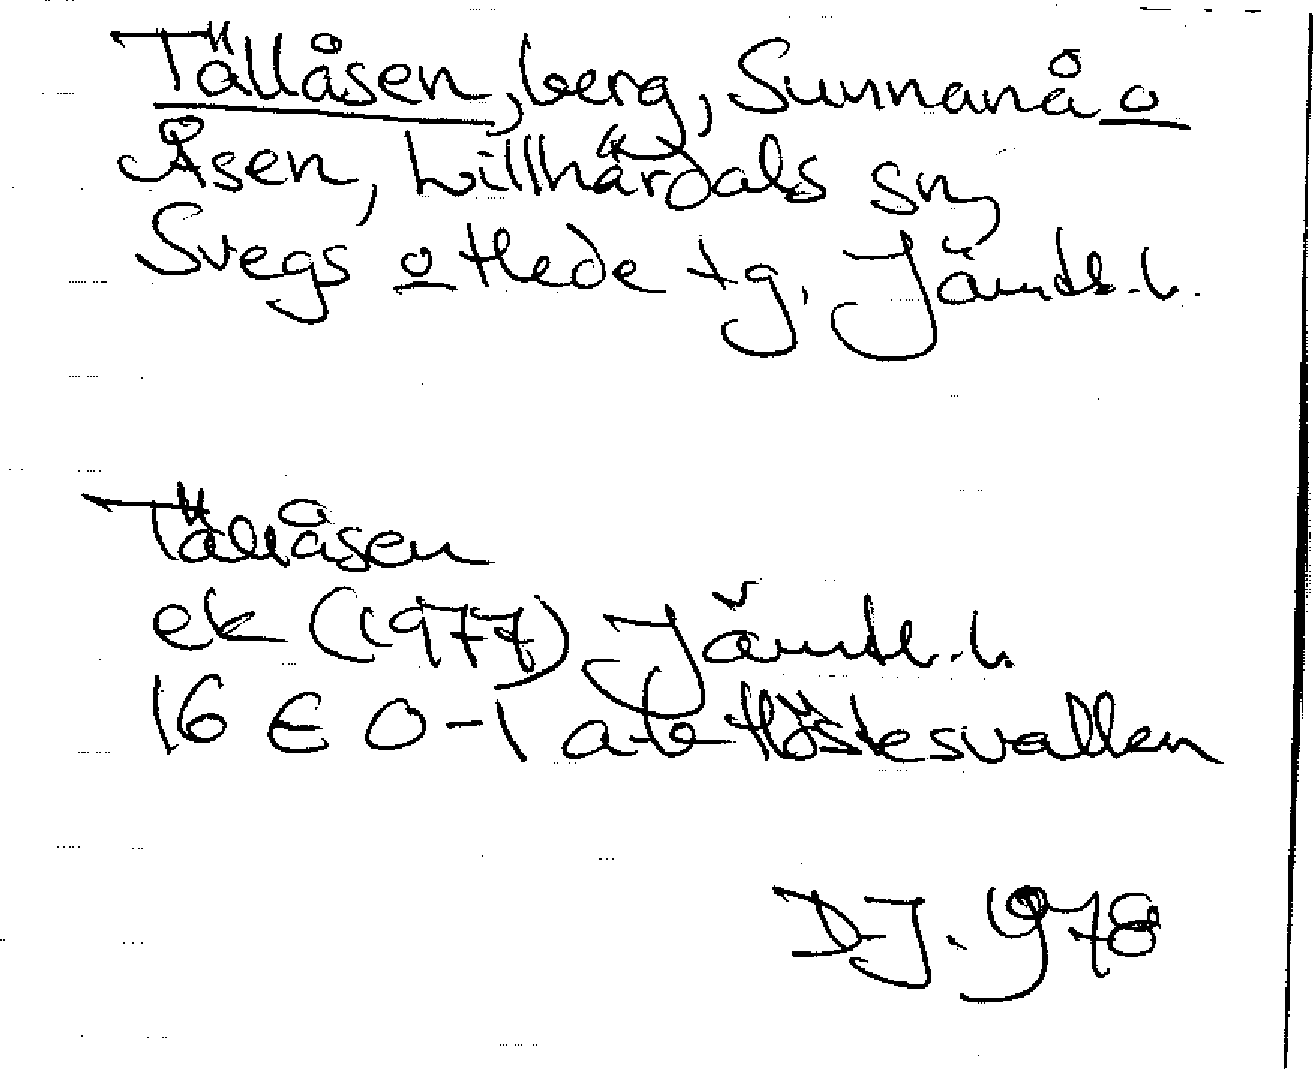 Tällåsen, berg, Sunnanå o
Åsen, Lillhärdals sn,
Svegs o Hede tg, Jämtl. l.
Tällåsen
ek (1977) Jämtl. l.
16 E 0-1 a-b Höstesvallen
DJ. 1978